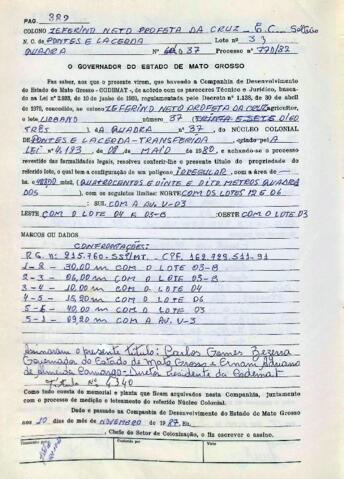 PAG. 389
COLONO ZEFERINO NETO PROFETA DA CRUZ - E.C. Solteiro
N. C. de PONTES E LACERDA Lote nº 33
QUADRA Nº 37 Processo nº 790/82
O GOVERNADOR DO ESTADO DE MATO GROSSO
Faz saber, aos que o presente virem, que havendo a Companhia de Desenvolvimento
do Estado de Mato Grosso - CODEMAT -, de acordo com os pareceres Técnico e Jurídico, basea-
do na Lei nº 2.933, de 10 de junho de 1969, regulamentada pelo Decreto nº 1.138, de 30 de abril
de 1970, concedido, ao colono ZEFERINO NETO PROFETA DA CRUZ agricultor,
o lote URBANO número 37 (TRINTA E SETE)
DA QUADRA Nº 37, DO NÚCLEO COLONIAL
DE PONTES E LACERDA-TRANSFERIDA, criado pela
LEI Nº 4.193, de 08 de MAIO de 1980, e achando-se o processo
revestido das formalidades legais, resolveu conferir-lhe o presente título de propriedade
do referido lote, o qual tem a configuração de um polígono IRREGULAR, com a área de
m2, (QUATROCENTOS E VINTE E OITO METROS QUADRA
DOS), com os seguintes limites: NORTE COM OS LOTES 12 E 06
: SUL COM A AV. V-03
LESTE COM O LOTE 04 E 03-B :OESTE COM O LOTE 03
MARCOS OU DADOS
CONFRONTAÇÕES:
RG. Nº 215.760-SSP/MT. - CPF. 162.729.511-91
1-2 - 30,00 m COM O LOTE 03-B
2-3 - 06,00 m COM O LOTE 03-B
3-4 - 10,00 m COM O LOTE 04
4-5 - 15,20 m COM O LOTE 06
5-6 - 40,00 m COM O LOTE 03
5-1 - 09,20 m COM A AV. V-3
Assinaram o presente título: Carlos Gomes Bezerra
Governador do Estado de Mato Grosso e Ernani Adriano
de Almeida Camargo - Diretor Presidente da Codemat
Título Nº 4340
Como tudo consta do memorial e planta que ficam arquivados nesta Companhia, juntamente
com o processo de medição e loteamento do referido Núcleo Colonial.
Dado e passado na Companhia de Desenvolvimento do Estado de Mato Grosso
aos 10 dias do mês de NOVEMBRO de 1987 Eu,
, Chefe do Setor de Colonização, o fiz escrever e assino.
Datilografado por Conferido por Visto